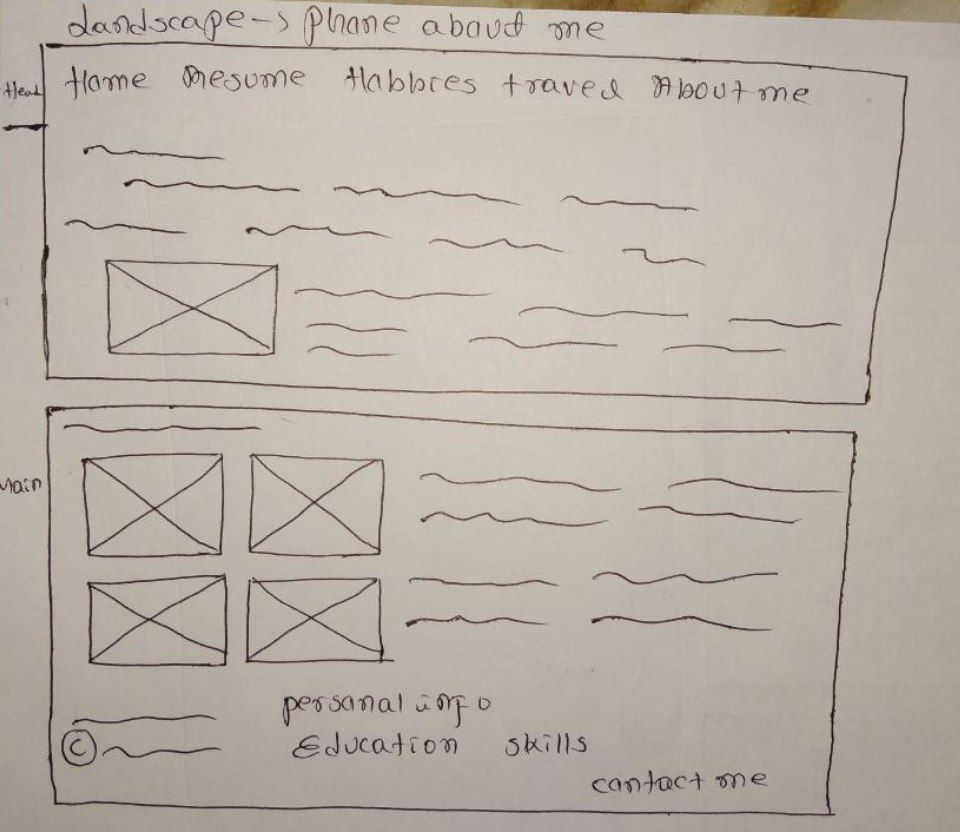 Landscape -> Phone about me
Head
Home Resume Hobbies travel About me
Main
personal info
© Education skills
contact me